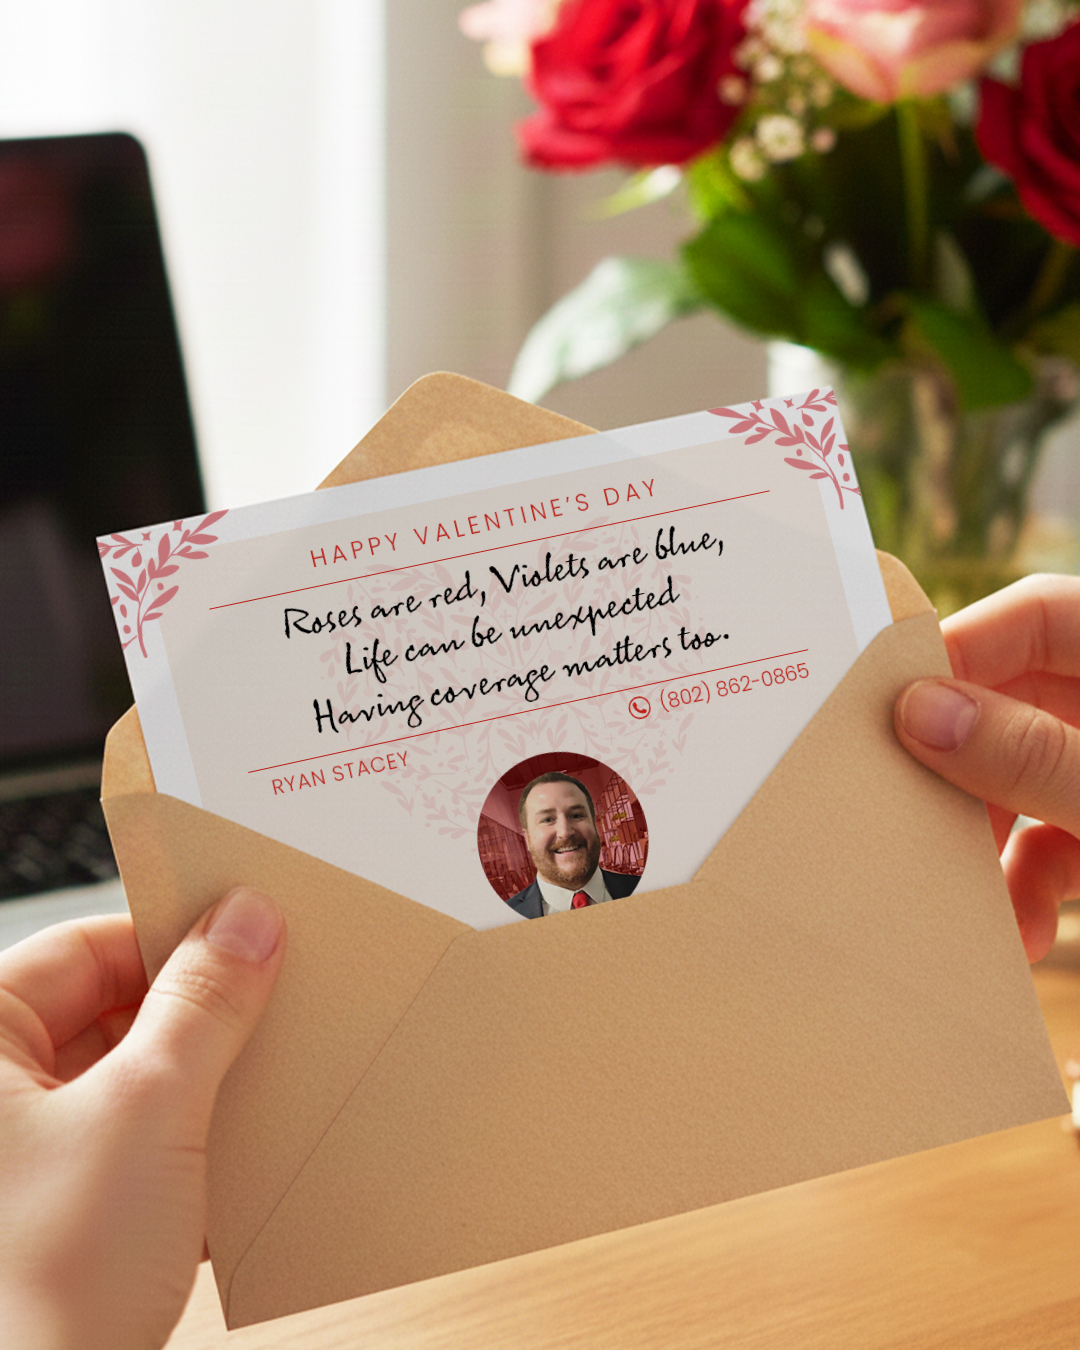 HAPPY VALENTINE'S DAY
Roses are red, Violets are blue,
Life can be unexpected
Having coverage matters too.
(802) 862-0865
RYAN STACEY